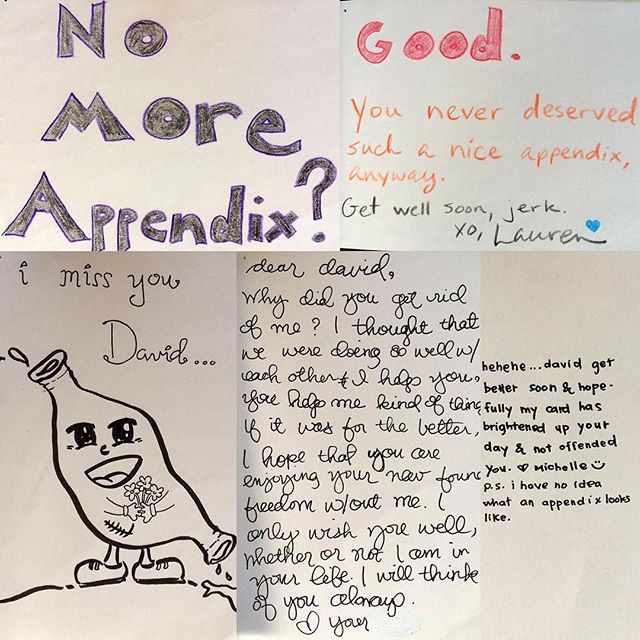 No
More
Appendix?
Good.
You never deserved
such a nice appendix,
anyway.
Get well soon, jerk.
xo, Lauren
i miss you
David...
dear david,
Why did you get rid
of me? I thought that
we were doing so well w/
each other & I help you,
you help me kind of thing
if it was for the better,
I hope that you are
enjoying your new found
freedom w/out me. I
only wish you well,
whether or not I am in
your life. I will think
of you always.
♡ your
hehehe...david get
better soon & hope-
fully my card has
brightened up your
day & not offended
you. ♡ Michelle ☺
p.s. i have no idea
what an appendix looks
like.